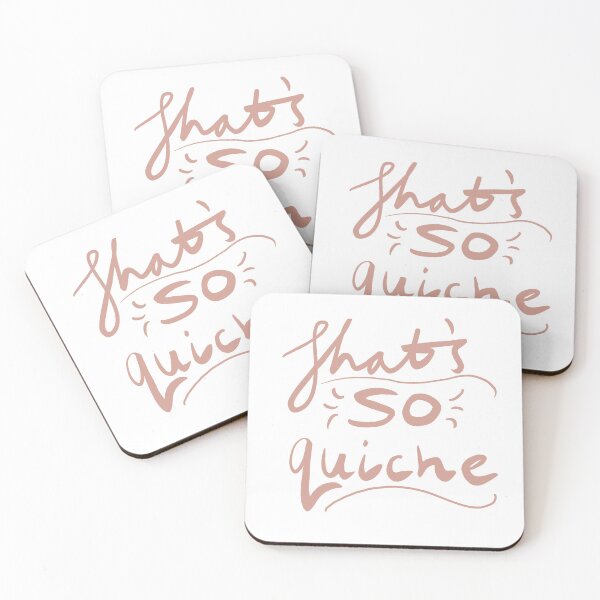 That's
SO
That's
SO
quiche
That's
SO
quiche
That's
SO
quiche